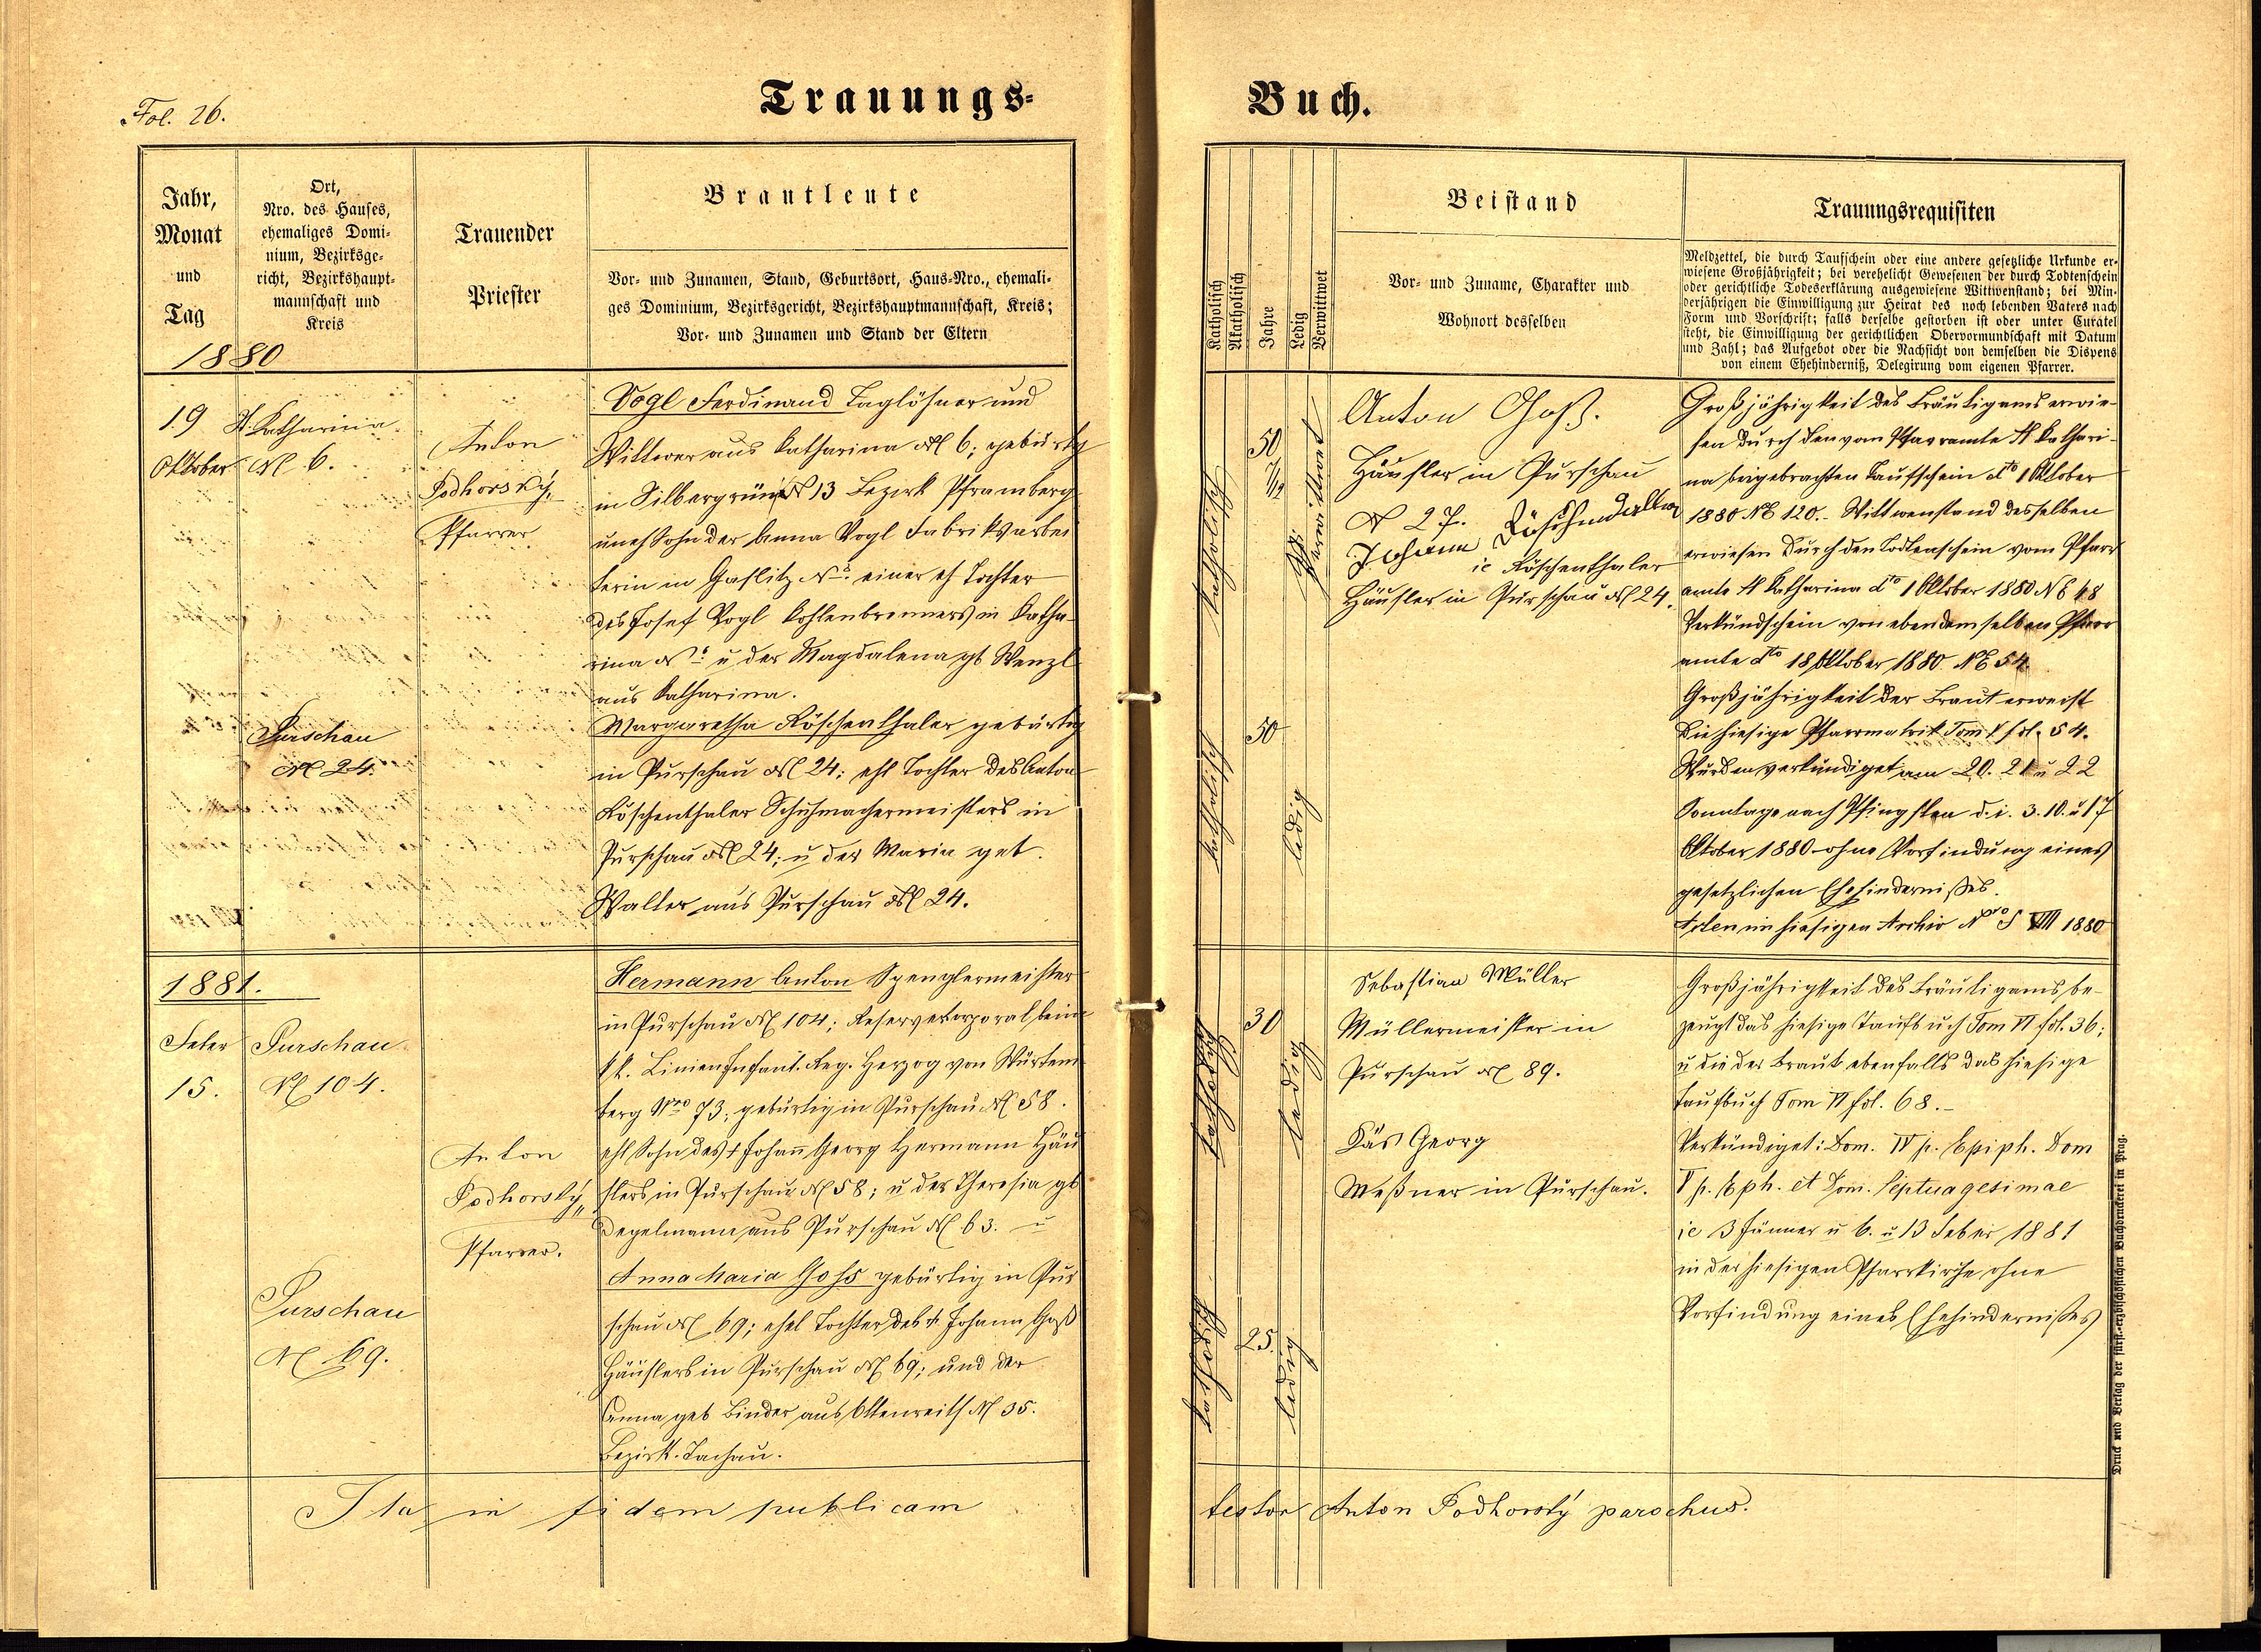 Fol. 26.
Trauungs-
Buch.
Jahr,
Monat
und
Tag
1880
Ort,
Nro. des Hauses,
ehemaliges Domi-
nium, Bezirksge-
richt, Bezirkshaupt-
mannschaft und
Kreis
Trauender
Priester
Brautleute
Vor- und Zunamen, Stand, Geburtsort, Haus-Nro., ehemali-
ges Dominium, Bezirksgericht, Bezirkshauptmannschaft, Kreis;
Vor- und Zunamen und Stand der Eltern
Katholisch
Akatholisch
Jahre
Ledig
Verwittwet
Beistand
Vor- und Zuname, Charakter und
Wohnort desselben
Trauungsrequisiten
Meldzettel, die durch Taufschein oder eine andere gesetzliche Urkunde er-
wiesene Großjährigkeit; bei verehelicht Gewesenen der durch Todtenschein
oder gerichtliche Todeserklärung ausgewiesene Wittwenstand; bei Min-
derjährigen die Einwilligung zur Heirat des noch lebenden Vaters nach
Form und Vorschrift; falls derselbe gestorben ist oder unter Curatel
steht, die Einwilligung der gerichtlichen Obervormundschaft mit Datum
und Zahl; das Aufgebot oder die Nachsicht von demselben die Dispens
von einem Ehehinderniß, Delegirung vom eigenen Pfarrer.
19
Oktober
St. Katharina
N 6.
Anton
Podhorský,
Pfarrer
Vogl Ferdinand Taglöhner und
Wittwer aus Katharina N 6; gebürtig
in Silbergrün N 13 Bezirk Pframberg
unehl Sohn der Anna Vogl Fabriksarbei
terin in Haslitz einer eh Tochter
des Josef Vogl Kohlenbrenners in Katha-
rina N 6 u der Magdalena gb Wenzl
aus Katharina.
Purschau
N 24.
Margaretha Röschenthaler gebürtig
in Purschau N 24; ehl Tochter des Anton
Röschenthaler Schuhmachermeisters in
Purschau N 24; u der Maria geb.
Walter aus Purschau N 24.
katholisch
50
7/12
verwittwet
katholisch
50
ledig
Anton Goß.
Häusler in Purschau
N 27.
Johann
ie Röschenthaler
Häusler in Purschau N 24.
Großjährigkeit des Bräutigams erwie-
sen durch den vom Pfarramte St Kathari-
na beigebrachten Taufschein dto 1 Oktober
1880 NE 120.- Wittwenstand desselben
erwiesen durch den Todtenschein vom Pfarr
amte St Katharina dto 1 Oktober 1880 NE 48
Verkündschein von ebendemselben Pfarr
amte dto 18 Oktober 1880 NE 54.
Großjährigkeit der Braut erweist
die hiesige Pfarrmatrik Tom V fol. 54.
Wurden verkündiget am 20. 21 u 22
Sonntage nach Pfingsten d. i. 3. 10. u 17
Oktober 1880 ohne Vorfindung eines
gesetzlichen Ehehindernißes.
Akten im hiesigen Archiv Nro VIII 1880
1881.
Feber
15.
Purschau
N 104.
Anton
Podhorský,
Pfarrer.
Hermann Anton Spenglermeister
in Purschau N 104; Reservekorporal beim
kk. Linien Infant. Reg. Herzog von Würtem
berg Nro 73; gebürtig in Purschau N 58.
ehl Sohn des + Johann Georg Hermann Häu
slers in Purschau N 58; u der Theresia gb
Degelmann aus Purschau N 63. u
Purschau
N 69.
Anna Maria Gohs gebürtig in Pur
schau N 69; ehel Tochter des + Johann Goß
Häuslers in Purschau N 69; und der
Anna geb Binder aus Ottenreith N 35.
Bezirk Tachau.
katholisch
30
ledig
katholisch
25.
ledig
Sebastian Müller
Müllermeister in
Purschau N 89.
Käs Georg
Meßner in Purschau.
Großjährigkeit des Bräutigams be-
zeugt das hiesige Taufbuch Tom VI fol. 36;
u die der Braut ebenfalls das hiesige
Taufbuch Tom VI fol. 68.-
Verkündiget: Dom. IV p. Epiph. Dom
V p. Eph. et Dom. Septuagesimae
ie 3 Jänner u 6. u 13 Feber 1881
in der hiesigen Pfarrkirche ohne
Vorfindung eines Ehehindernißes
Ita in fidem publicam
testor Anton Podhorský parochus.
Druck und Verlag der fürst.-erzbischöflichen Buchdruckerei in Prag.